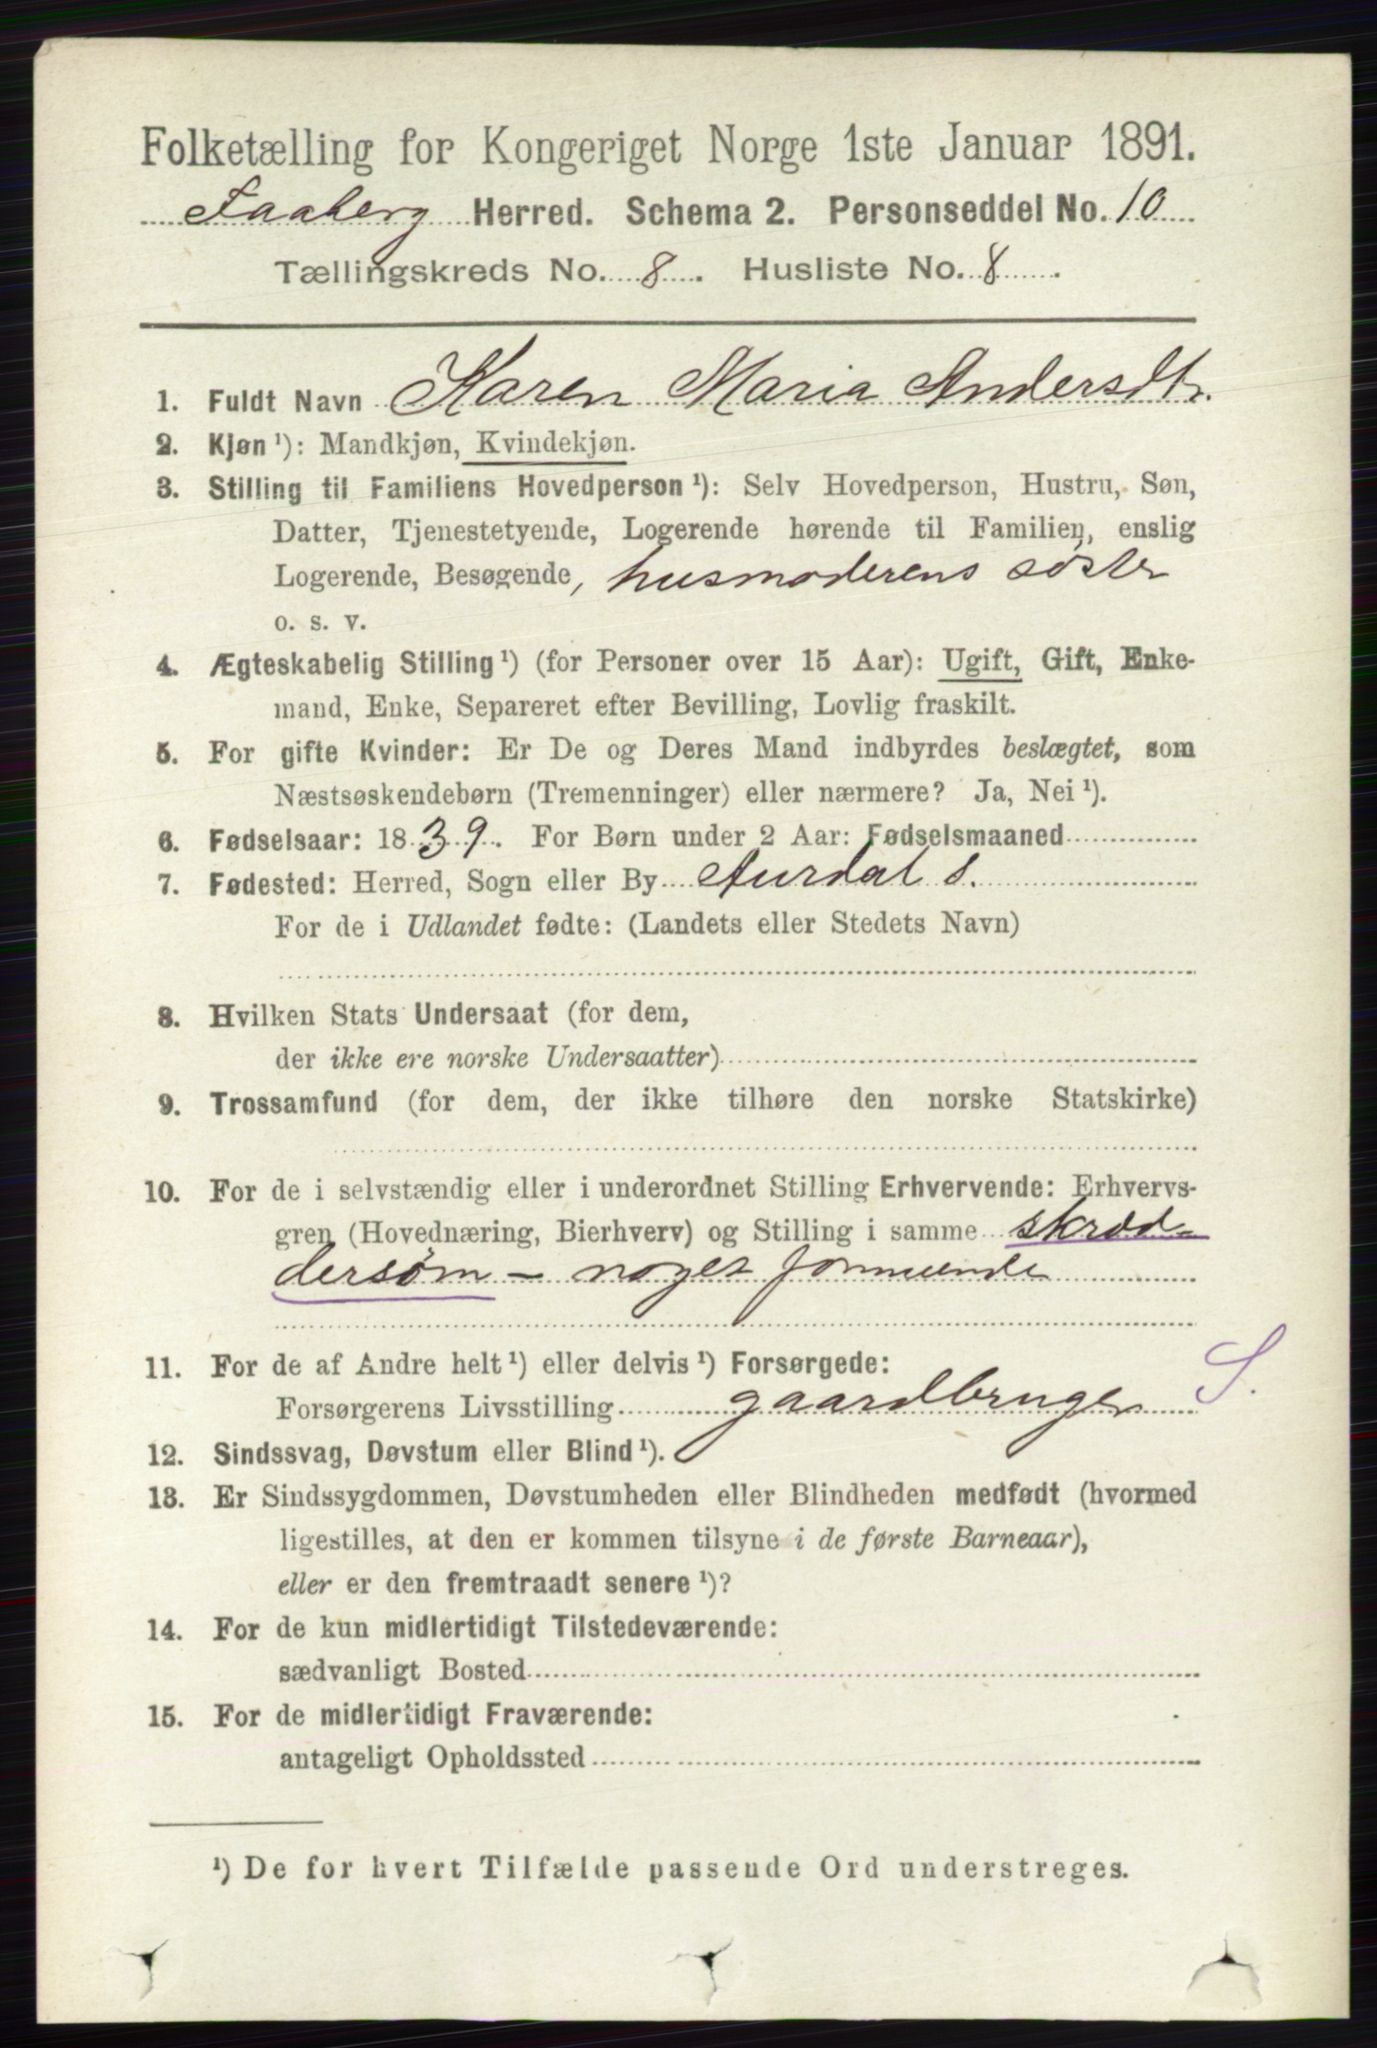 Folketælling for Kongeriget Norge 1ste Januar 1891.
Faaberg Herred. Schema 2. Personseddel No. 10
Tællingskreds No. 8. Husliste No. 8.
1. Fuldt Navn Karen Maria Andersdtr.
2. Kjøn ¹): Mandkjøn, Kvindekjøn.
3. Stilling til Familiens Hovedperson ¹): Selv Hovedperson, Hustru, Søn,
Datter, Tjenestetyende, Logerende hørende til Familien, enslig
Logerende, Besøgende, husmoderens söster
o. s. v.
4. Ægteskabelig Stilling ¹) (for Personer over 15 Aar): Ugift, Gift, Enke-
mand, Enke, Separeret efter Bevilling, Lovlig fraskilt.
5. For gifte Kvinder: Er De og Deres Mand indbyrdes beslægtet, som
Næstsøskendebørn (Tremenninger) eller nærmere? Ja, Nei ¹).
6. Fødselsaar: 1839. For Børn under 2 Aar: Fødselsmaaned
7. Fødested: Herred, Sogn eller By Aurdal s.
For de i Udlandet fødte: (Landets eller Stedets Navn)
8. Hvilken Stats Undersaat (for dem,
der ikke ere norske Undersaatter)
9. Trossamfund (for dem, der ikke tilhøre den norske Statskirke)
10. For de i selvstændig eller i underordnet Stilling Erhvervende: Erhvervs-
gren (Hovednæring, Bierhverv) og Stilling i samme skræd-
dersøm - noget formuende
11. For de af Andre helt ¹) eller delvis ¹) Forsørgede: S.
Forsørgerens Livsstilling gaardbruger
12. Sindssvag, Døvstum eller Blind ¹).
13. Er Sindssygdommen, Døvstumheden eller Blindheden medfødt (hvormed
ligestilles, at den er kommen tilsyne i de første Barneaar),
eller er den fremtraadt senere ¹)?
14. For de kun midlertidigt Tilstedeværende:
sædvanligt Bosted
15. For de midlertidigt Fraværende:
antageligt Opholdssted
¹) De for hvert Tilfælde passende Ord understreges.